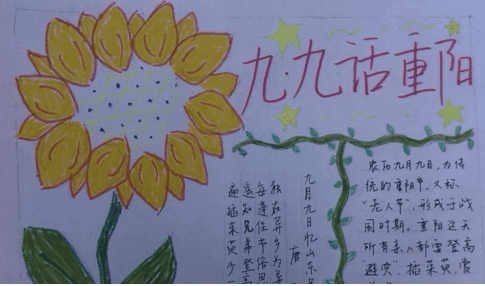 九·九话重阳
九月九日忆山东
唐
独在异乡为异
每逢佳节倍思
遥知兄弟登高
遍插茱萸少一
农历九月九日,为传
统的重阳节,又称
“老人节”,形成于战
国时期。重阳这天
所有亲人都要登高
“避灾”,插茱萸、赏